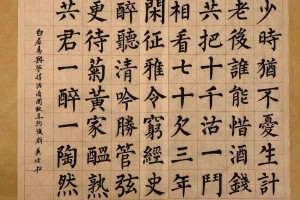 少時猶不憂生計
老後誰能惜酒錢
共把十千沽一鬥
相看七十欠三年
閑征雅令窮經史
醉聽清吟勝管弦
更待菊黃家醞熟
共君一醉一陶然
白居易與夢得沽酒閑飲且約後期